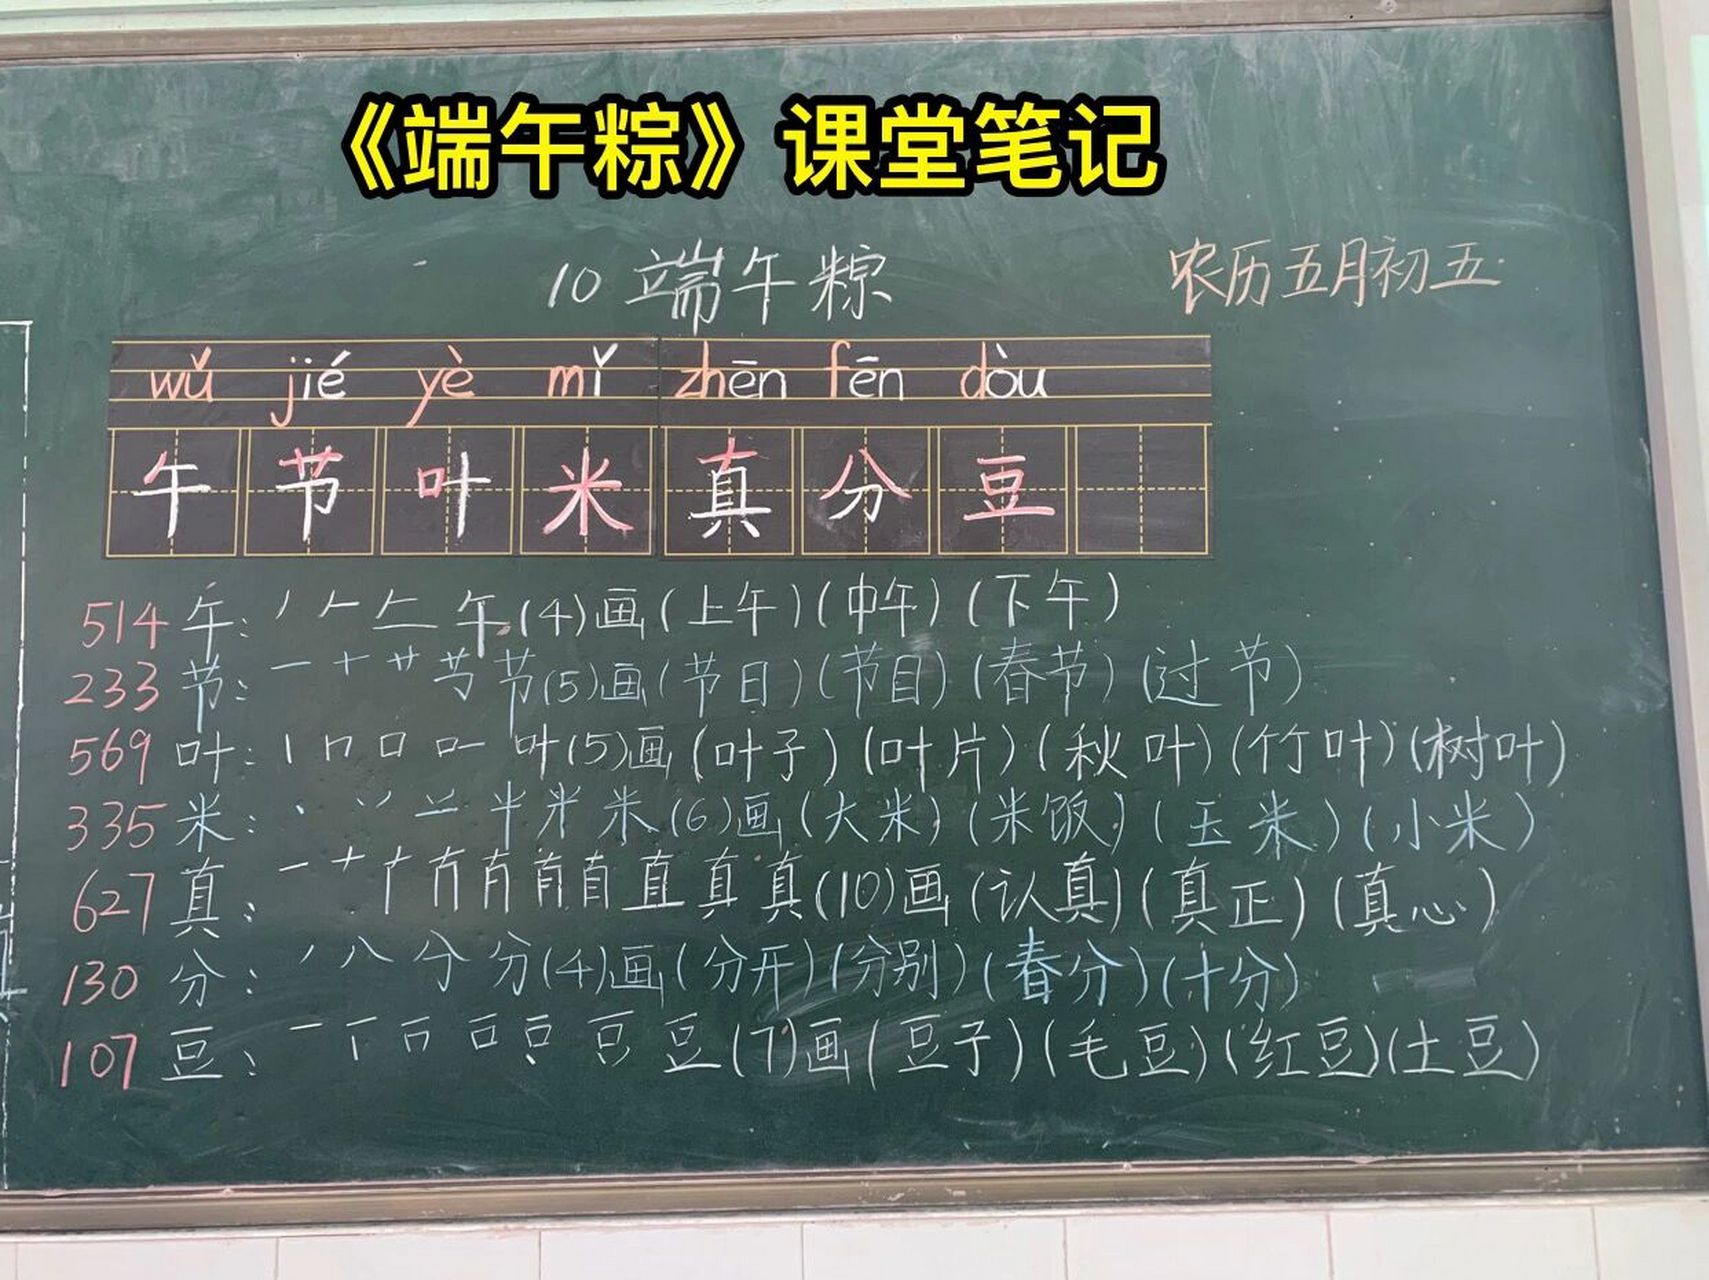 《端午粽》课堂笔记
10 端午粽
农历五月初五
wǔ jié yè mǐ zhēn fēn dòu
午 节 叶 米 真 分 豆
514 午: 午(4)画(上午)(中午)(下午)
233 节: 节(5)画(节日)(节目)(春节)(过节)
569 叶: 叶(5)画(叶子)(叶片)(秋叶)(竹叶)(树叶)
335 米: 米(6)画(大米)(米饭)(玉米)(小米)
627 真: 真(10)画(认真)(真正)(真心)
130 分: 分(4)画(分开)(分别)(春分)(十分)
107 豆: 豆(7)画(豆子)(毛豆)(红豆)(土豆)